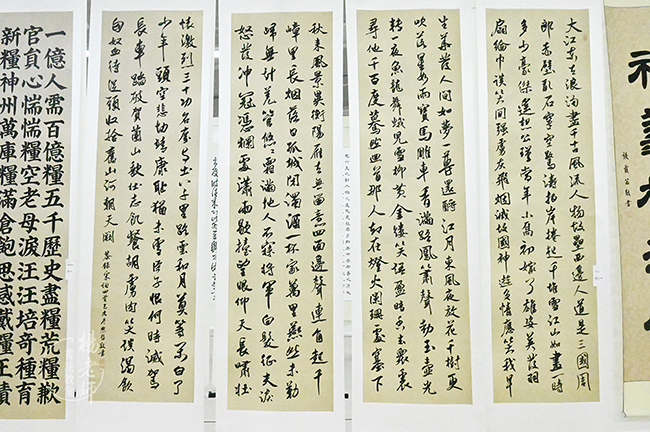 大江東去浪淘盡千古風流人物故壘西邊人道是三國周
郎赤壁亂石穿空驚濤拍岸捲起千堆雪江山如畫一時
多少豪傑遙想公瑾當年小喬初嫁了雄姿英發羽
扇綸巾談笑間強虜灰飛烟滅故國神遊多情應笑我早
生華髮人間如夢一尊還酹江月東風夜放花千樹更
吹落星如雨寶馬雕車香滿路鳳簫聲動玉壺光
轉一夜魚龍舞蛾兒雪柳黃金縷笑語盈盈暗香去眾裏
尋他千百度驀然回首那人却在燈火闌珊處塞下
秋來風景異衡陽雁去無留意四面邊聲連角起千
嶂里長烟落日孤城閉濁酒一杯家萬里燕然未勒
歸無計羌管悠悠霜滿地人不寐將軍白髮征夫淚
怒髮沖冠憑欄處瀟瀟雨歇擡望眼仰天長嘯壯
懷激烈三十功名塵與土八千里路雲和月莫等閒白了
少年頭空悲切靖康恥猶未雪臣子恨何時滅駕
長車踏破賀蘭山缺壯志飢餐胡虜肉笑談渴飲
匈奴血待從頭收拾舊山河朝天闕
一億人需百億糧五千歷史盡糧荒糧歉
官貟心惴惴糧空老母淚汪汪培奇種育
新糧神州萬庫糧滿倉飽思感戴糧王績
楊老師